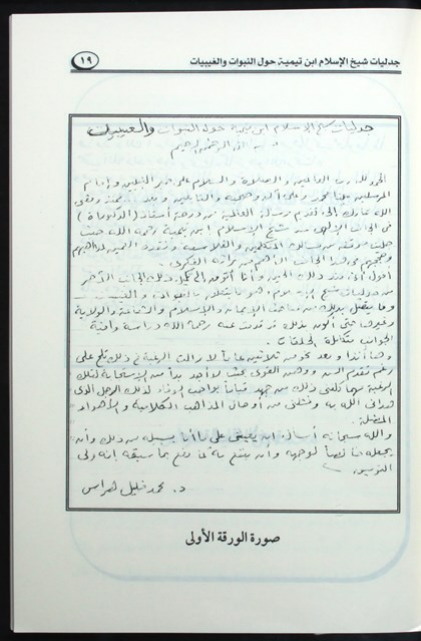 جدليات شيخ الإسلام ابن تيمية حول النبوات والغيبيات
١٩
جدليات شيخ الإسلام ابن تيمية حول النبوات والغيبيات
بسم الله الرحمن الرحيم
الحمد لله رب العالمين والصلاة والسلام على خير النبيين وإمام
المرسلين سيدنا محمد وعلى آله وصحبه والتابعين وبعد
الله إلى تقديم رسالة العالمية من درجة أستاذ (الدكتوراه)
في الجانب الإلهي من شيخ الإسلام ابن تيمية رحمه الله حيث
موقفه من مسالك المتكلمين والفلاسفة
هذا الجانب من تراثه الفكري
أقول منذ ذلك الحين وأنا أتوق إلى ذلك الجانب الآخر
من جدليات شيخ الإسلام، هو ما يتعلق بالنبوات والغيبيات
وما يتصل بذلك من مباحث الإيمان والإسلام والشفاعة والولاية
وغيرها حتى أكون بذلك قد قدمت عنه رحمه الله دراسة وافية
الجوانب متكاملة الحلقات.
وها أنذا وبعد نحو من ثلاثين عاماً لا زالت الرغبة في ذلك تلح علي
رغم تقدم السن ووهن القوى بحيث لا أجد بداً من الاستجابة لتلك
الرغبة مهما كلفني ذلك من جهد قياماً بواجب الوفاء لذلك الرجل الذي
هداني الله به من أوحال المذاهب الكلامية والأهواء
المضللة.
والله سبحانه أسأل أن يعينني على ما أنا بسبيله من ذلك وأن
يجعله خالصاً لوجهه وأن ينفع به كما نفع بما سبقه إنه ولي
التوفيق
د. محمد خليل هراس
صورة الورقة الأولى